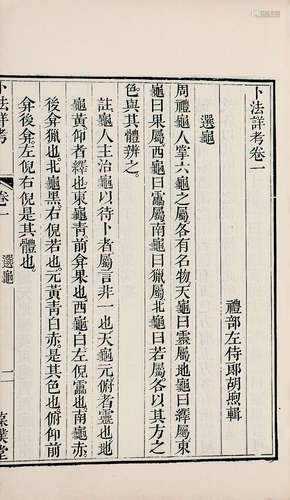 卜法詳考卷一
禮部左侍郎胡煦輯
選龜
周禮龜人掌六龜之屬各有名物天龜曰靈屬地龜曰繹屬東
龜曰果屬西龜曰靁屬南龜曰獵屬北龜曰若屬各以其方之
色與其體辨之
註龜人主治龜以待卜者屬言非一也天龜元俯者靈也地
龜黃仰者繹也東龜青前弇果也西龜白左倪靁也南龜赤
後弇獵也北龜黑右倪若也元黃青白赤是其色也俯仰前
弇後弇左倪右倪是其體也
卜法詳考
卷一
選龜
一
葆璞堂